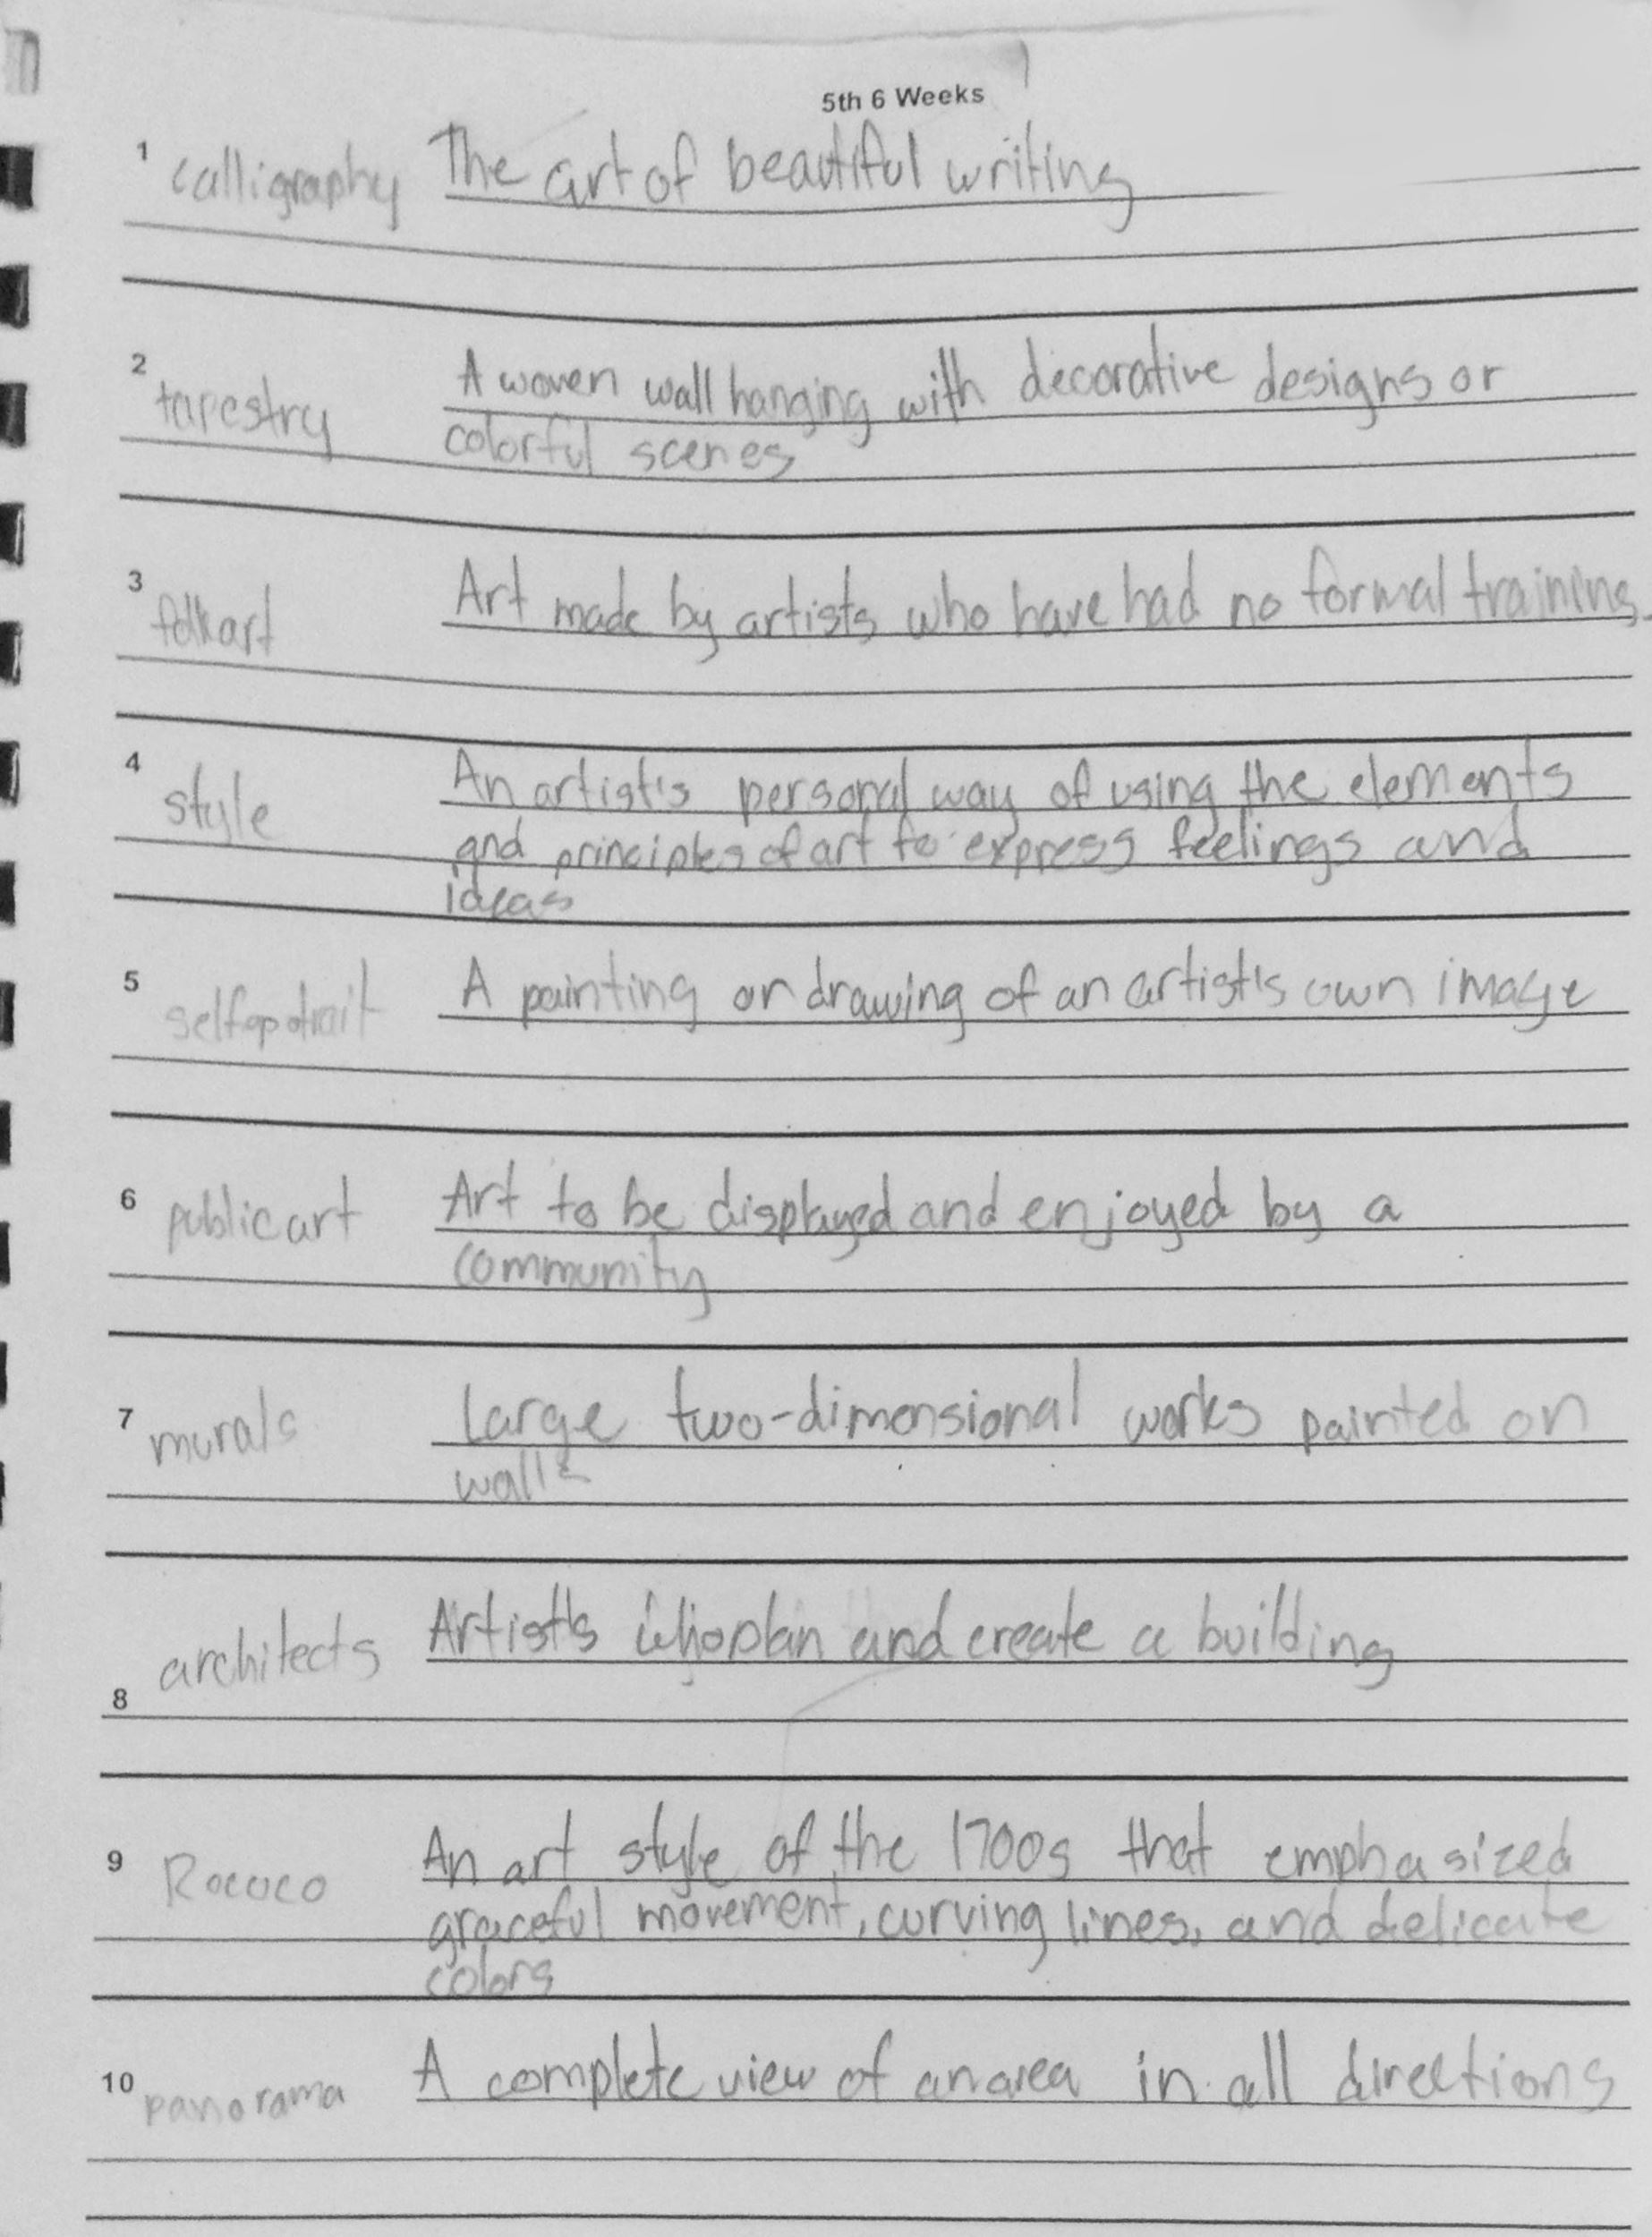 5th 6 Weeks
1 calligraphy The art of beautiful writing
2 tapestry A woven wall hanging with decorative designs or
colorful scenes
3 folkart Art made by artists who have had no formal training.
4 style An artist's personal way of using the elements
and principles of art to express feelings and
ideas
5 selfopotrait A painting or drawing of an artist's own image
6 public art Art to be displayed and enjoyed by a
community
7 murals Large two-dimensional works painted on
walls
8 architects Artist's who plan and create a building
9 Rococo An art style of the 1700s that emphasized
graceful movement, curving lines, and delicate
colors
10 panorama A complete view of an area in all directions